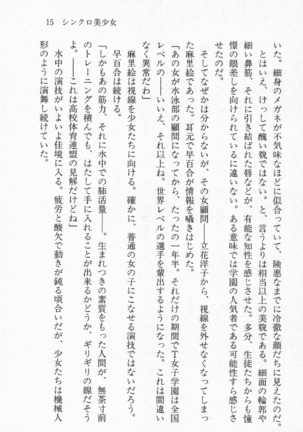 15 シンクロ美少女
いた。細身のメガネが不気味なほどに似合っていて、険悪なまでに冷徹な顔だちに見えたのだ。
とはいえ、けっして醜い貌ではない。と、言うよりは相当以上の美貌である。細面の輪郭や
細い鼻筋、それに引き結ばれた唇などが、有能な知性を感じさせた。多分、生徒たちからも憧
憬の眼差しを向けられているに違いない。ある意味では学園の人気者である可能性すら感じさ
せたのだ。
そしてなぜかは分からないが、その女顧問──立花洋子から、視線を外せなくなってしまっ
た麻里絵であった。耳元で早百合が情報を囁きはじめた。
「あの女が水泳部の顧問になってから、たったの一年半。それだけの期間でT女子学園は全国
レベルの──いいえ、それ以上ね。世界レベルの選手を輩出するようになった。これは間違い
なく異常だわ」
麻里絵は視線を少女たちに向ける。確かに、普通の女の子にこなせる演技ではないだろう。
早百合は続ける。
「しかもあの筋力、それに水中での肺活量──。生まれつきの素質をもった人間が、無茶寸前
のトレーニングを積んでも、はたして手に入れることが出来るかどうか、ギリギリの線だそう
よ。──これは高校体育連盟の見解だけどね」
水中の演技がいよいよ佳境に入る。疲労と酸欠で動きが鈍る頃合いだが、少女たちは機械人
形のように演舞し続けていた。